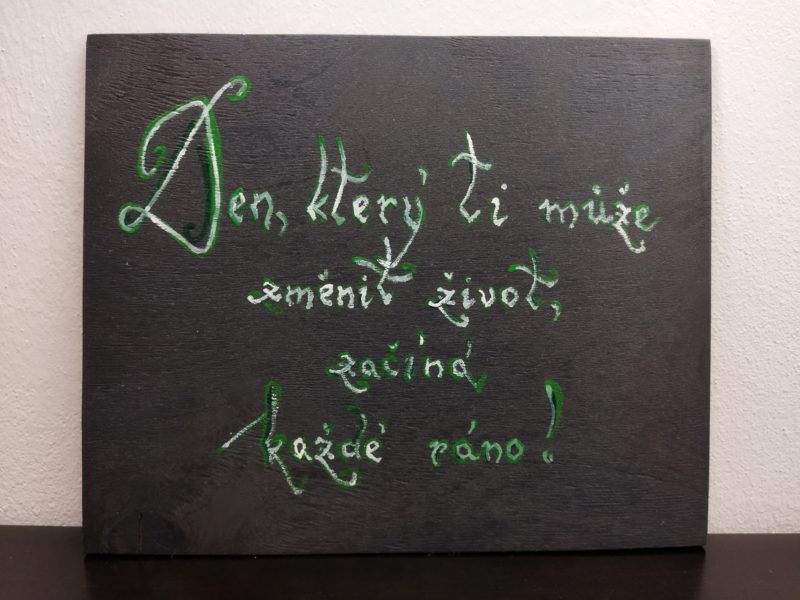 Den, který ti může
změnit život,
začíná
každé ráno!